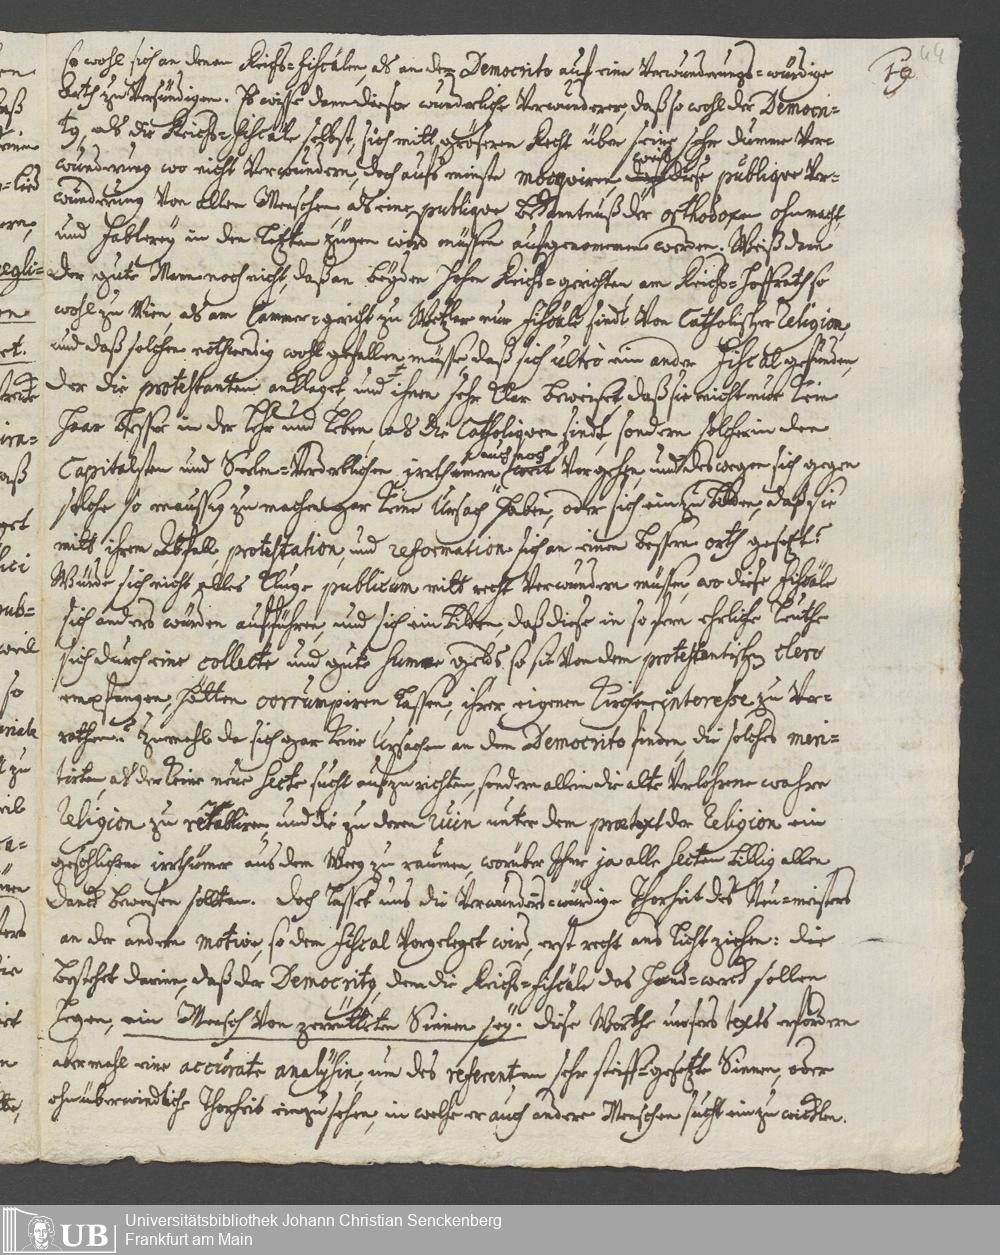 44
19.
so wohl sich an denen Reichs-Fiscälen als an dem Democrito auf eine Verwunderungs-würdige
arth zu versündigen. Es wisse dann dieser wunderliche Verwunderer, daß so wohl der Democri-
tus, als die Reichs-Fiscäle selbst, sich mitt gröserem Recht über seine sehr dumme Ver-
wunderung wo nicht verwundern, doch aufs minste mocquiren, weil diese publique Ver-
wunderung von allen Menschen als eine publique bekanntnuß der orthodoxen ohnmacht,
und Fablerey in den letzten zügen wird müssen aufgenommen werden. Weiß dann
der gute Mann noch nicht, daß an beyden hohen Reichs-gerichten am Reichs-Hoffrath so
wohl zu Wien, als am Cammer-gericht zu Wetzlar nur Fiscäle sind von Catholischer Religion,
und daß solchen nothwendig wohl gefallen müsse, daß sich ultrò ein ander Fiscal gefunden,
der die protestanten anklaget, und ihnen sehr klar beweiset, daß sie nicht nur kein
Haar besser in der Lehr und Leben, als die Catholiquen sindt, sondern solchen in den
Capitalsten und Seelen-Verderblichen irrthümern auch noch weit vorgehen, und deswegen sich gegen
solche so maussig zu machen gar keine Ursach haben, oder sich einzubilden, daß sie
mitt ihrem Abfall, protestation, und reformation sich an einen bessern orth gesetzt?
Würde sich nicht alles kluge publicum mitt recht verwundern müssen, wo diese Fiscäle
sich anders würden aufführen, und sich einbilden, daß diese in so fern ehrliche Leuthe
sich durch eine collecte und gute summe gelds, so sie von dem protestantischen clero
empfangen, hätten corrumpiren lassen, ihrer eigenen Kirchen interesse zu ver-
rathen? Zumahls da sich gar keine Ursachen an dem Democrito finden die solches meri-
tirten, als der keine neue Secte sucht aufzurichten, sondern allein die alte Verlohrne wahre
Religion zu retabliren, und die zu deren ruin unter dem praetext der Religion ein
geschlichene irrthümer aus dem Weeg zu raumen, worüber Ihme ja alle Secten billig allen
Danck beweisen sollten. Doch lasset uns die Verwunderns-würdige Thorheit des Neu-meisters
an der andern motive, so dem Fiscal vorgeleget wird, erst recht ans Licht ziehen: die
bestehet darinn, daß der Democritus, dem die Reichs-Fiscäle das Hand-werck sollen
legen, ein Mensch von zerrütteten Sinnen sey. Diese Worthe unsers texts erfordern
abermahl eine accurate analysin, um des referenten sehr steiff-gesetzte Sinnen, oder
ohnüberwindliche Thorheit einzusehen, in welche er auch andere Menschen sucht einzuwicklen.
UB Universitätsbibliothek Johann Christian Senckenberg
Frankfurt am Main